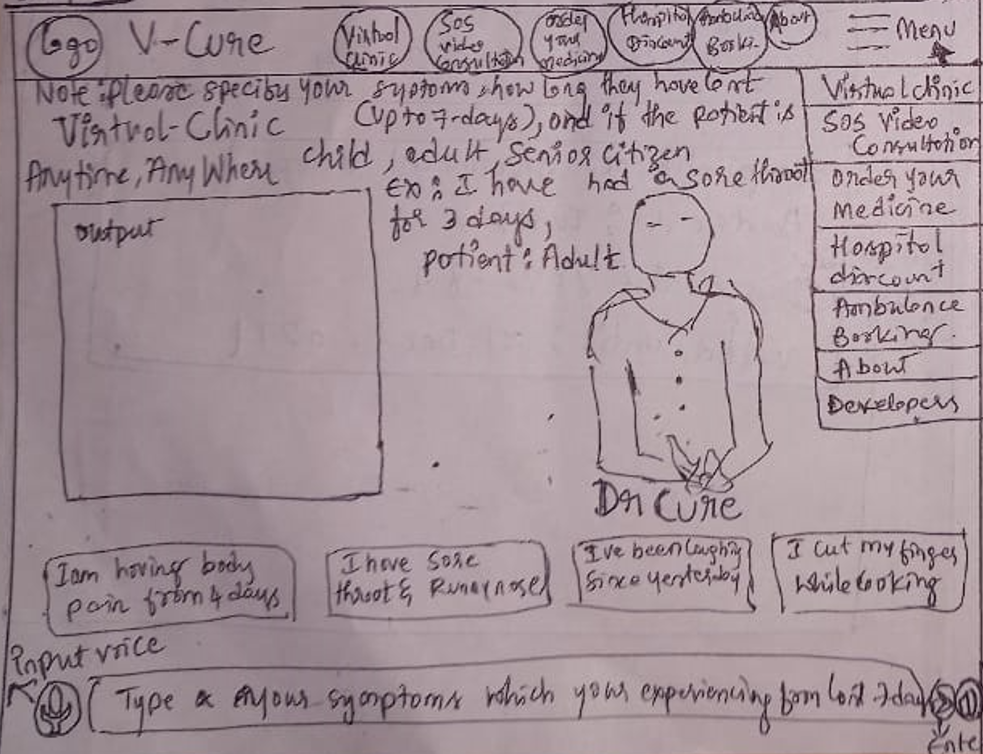 Logo V-Cure
Virtual
Clinic
SOS
video
Consultation
Order
your
medicine
Hospital
Discount
Booki.
About
Menu
Note: please specify your syptoms, how long they have last
(up to 7-days), and if the patient is
child, adult, senior citizen
Ex: I have had a sore throat
for 3 days,
patient: Adult
Virtual-Clinic
Anytime, Any Where
output
Dr Cure
Virtual clinic
SOS Video
Consultation
Order your
medicine
Hospital
discount
Ambulance
Booking
About
Developers
I am having body
pain from 4 days
I have sore
throat & Runny nose
I've been
since yesterday
I cut my finger
while cooking
Input voice
Type your symptoms which your experiencing from last 7 days
Ente